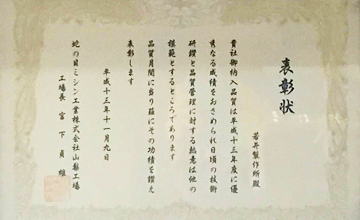 表彰状
若井製作所殿
貴社御納入品質は平成十三年度に優
秀なる成績をおさめられ日頃の技術
研鑽と品質管理に対する熱意は他の
模範とするところであります
品質月間に当り茲にその功績を讃え
表彰します
平成十三年十一月九日
蛇の目ミシン工業株式会社山梨工場
工場長 宮下貞雄